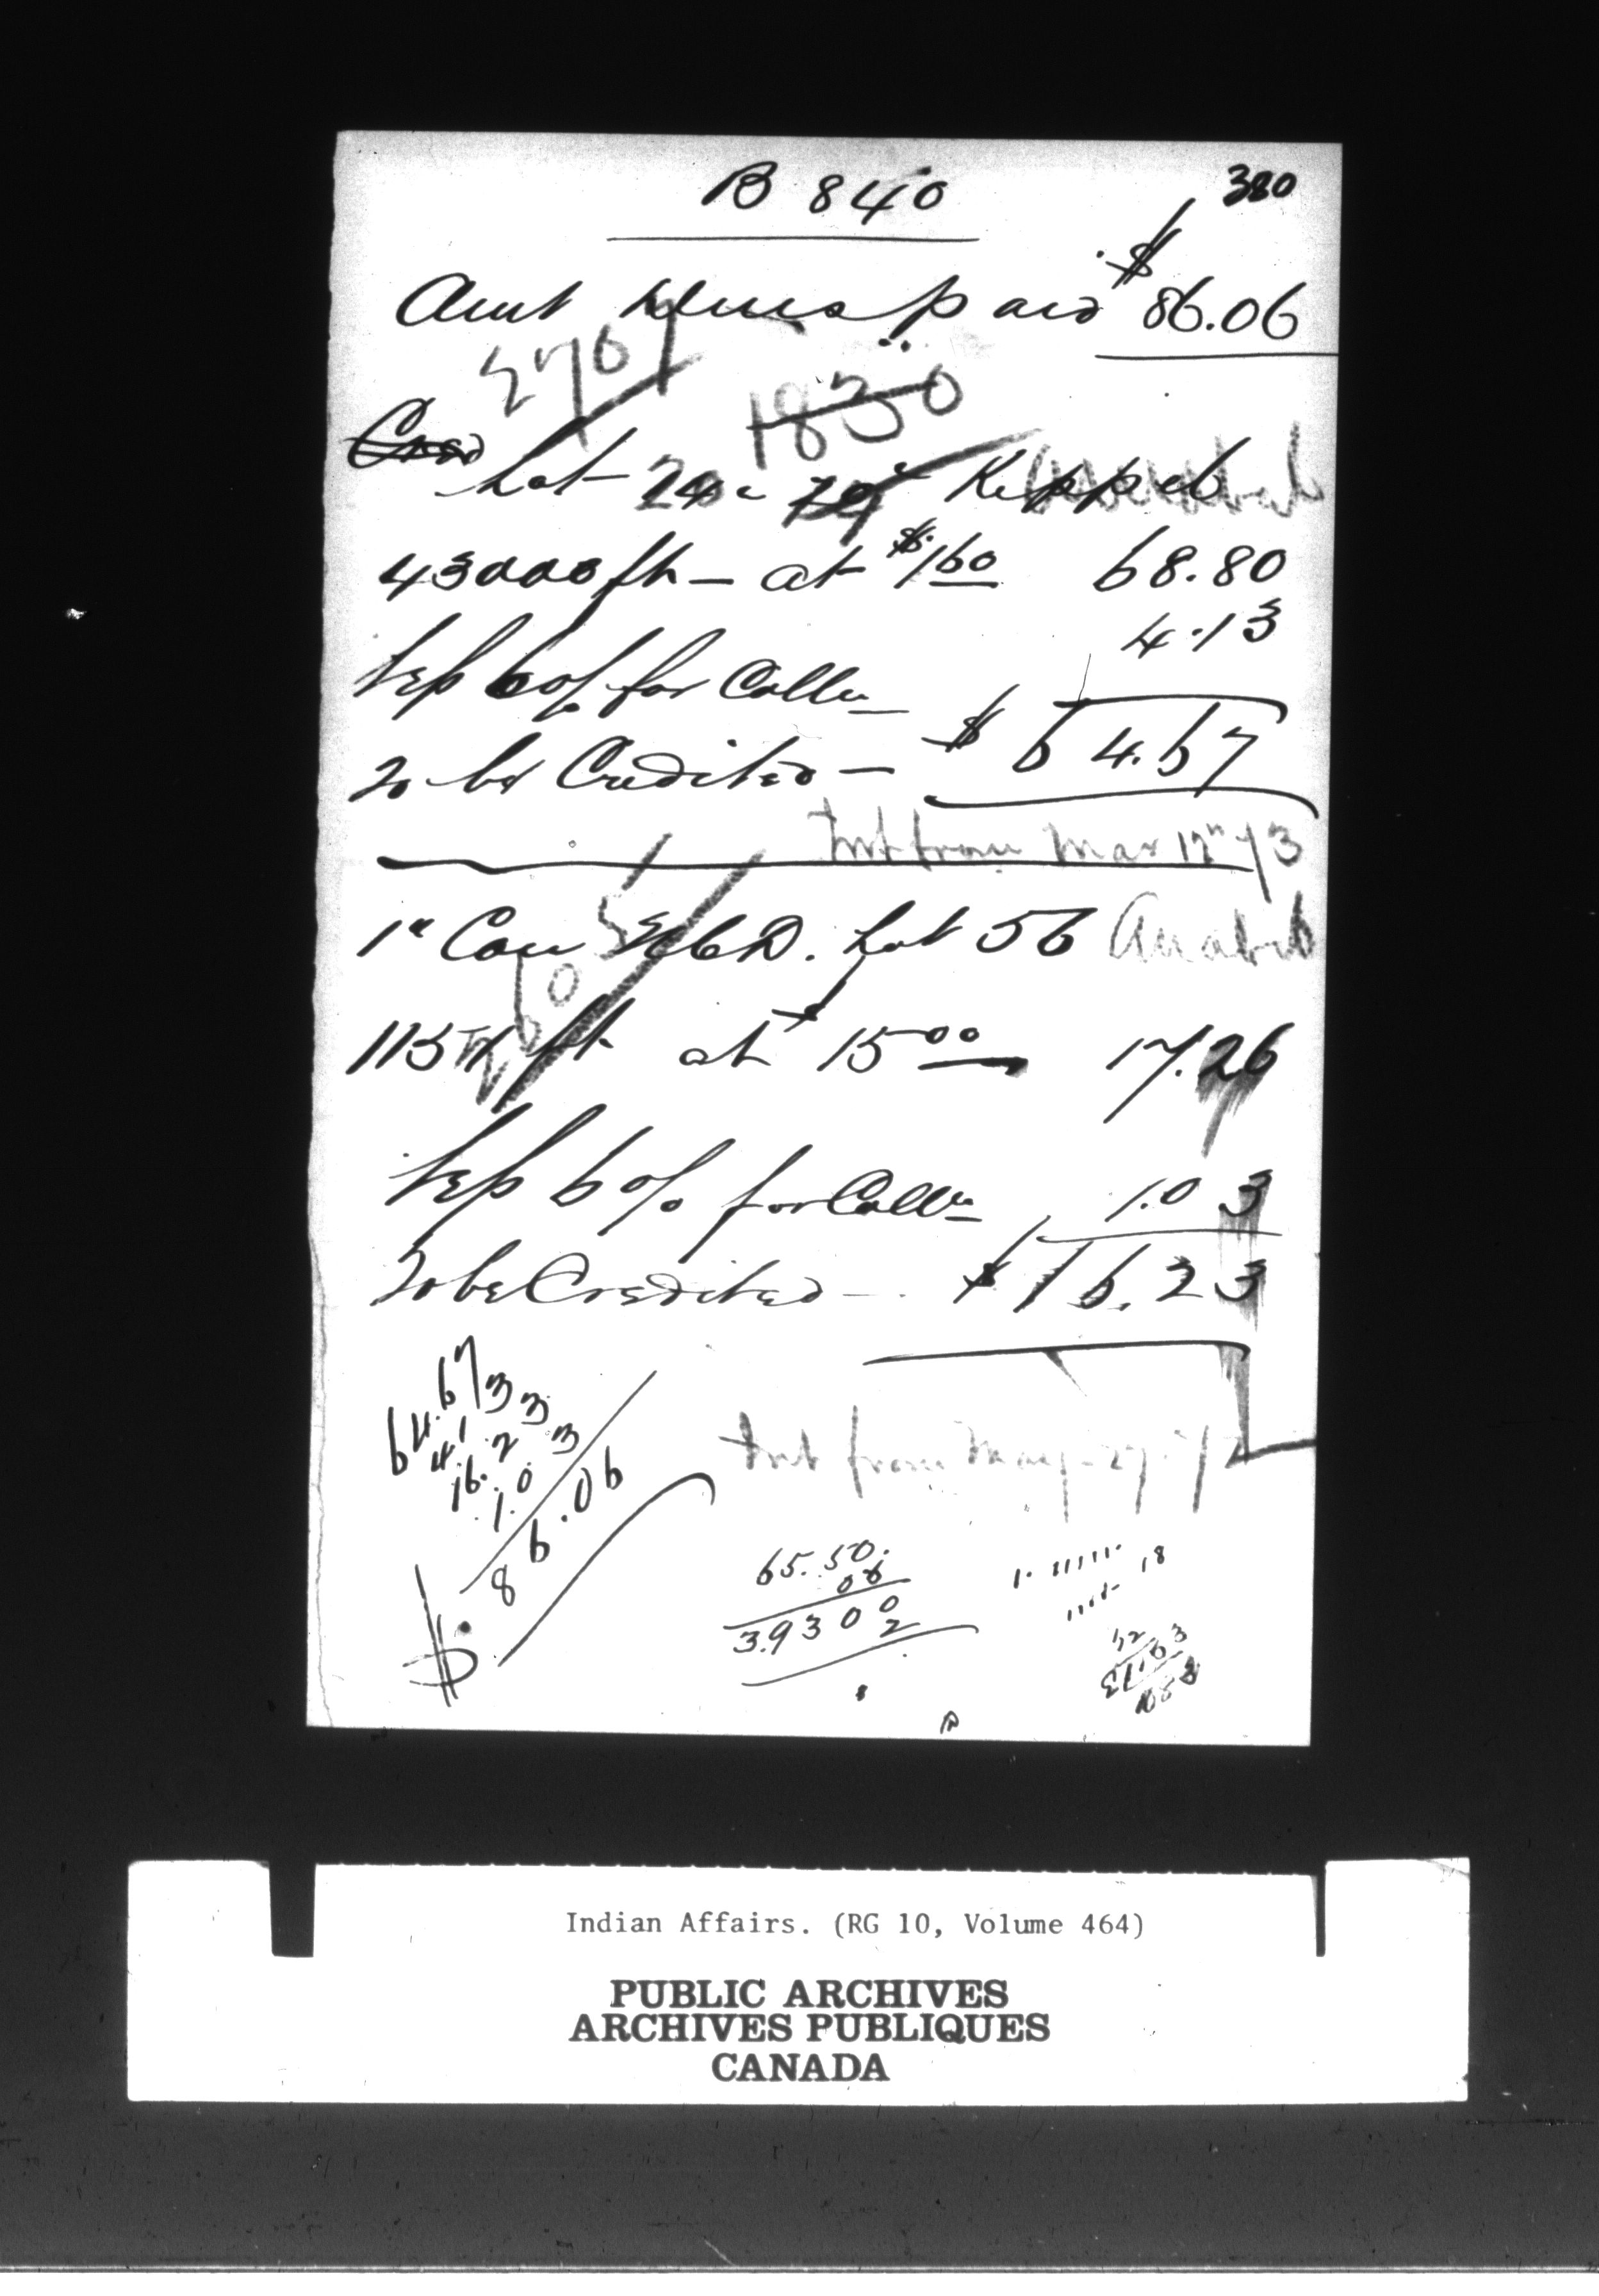 B 840
380
Amt dues paid $86.06
2701
1830
Lot 24 c Keppel
43000 ft - at $1.60 68.80
Less 6% for Colln 4.13
To be Credited - $64.67
Int from Mar 12" 73
1st Con EBR. Lot 56 Amabel
ft at $15.00 17.26
Less 6% for Colln 1.03
To be Credited - $16.23
64.67
4.13
16.23
1.03
$.86.06
Int from May 27.
65.50.
06
3.9300
2
18
Indian Affairs. (RG 10, Volume 464)
PUBLIC ARCHIVES
ARCHIVES PUBLIQUES
CANADA